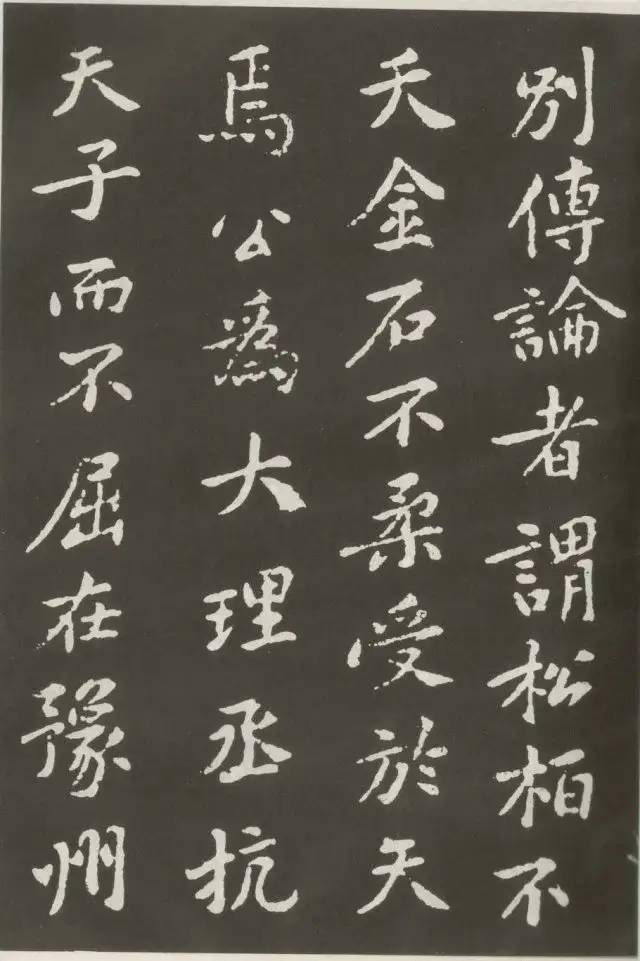 別傳論者謂松柏不
夭金石不柔受於天
焉公為大理丞抗
天子而不屈在豫州